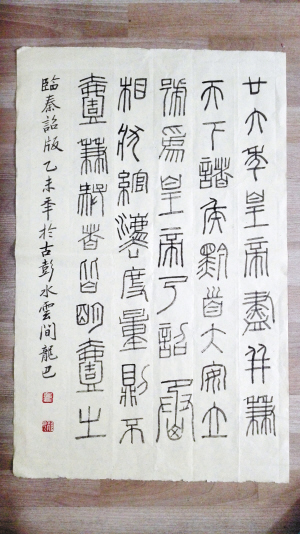 廿六年皇帝盡并兼
天下諸侯黔首大安立
號為皇帝乃詔丞
相狀綰灋度量則不
壹歉疑者皆明壹之
臨秦詔版乙未年於古彭水雲間龍巴